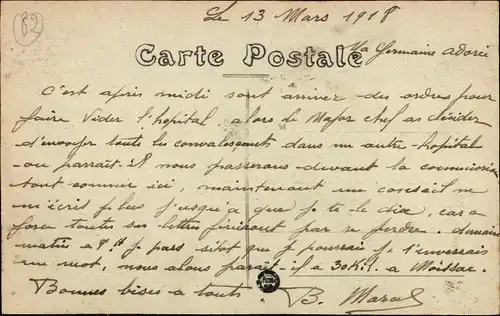 82
Le 13 Mars 1918
Carte Postale
Ma Germaine adorée
C'est apris midi sont arriver des ordres pour
faire vider l'hopital, alors le Major chef as décider
d'envoyer touts les convalescents dans un autre hopital
ou parrait-il nous passerons devant la commission
tout comme ici, maintenant un conseil ne
m'écris plus jusqu'a que je te le dise, car a
force toutes ses lettre finiront par se perdre. demain
matin a 8 h je pars sitot que je pourrais je t'enverrais
un mot, nous alons parait-il a 30 Kil. a Moissac.
Bonnes bises a touts B.